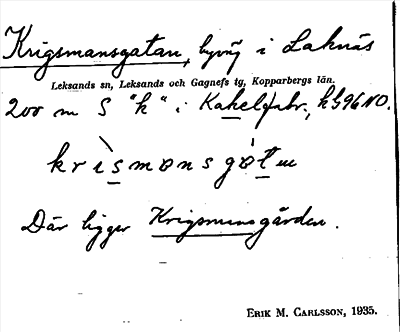 Krigsmansgatan, byväg i Laknäs
Leksands sn, Leksands och Gagnefs tg, Kopparbergs län.
200 m S "k" i Kakelfabr., kb 96 NO.
krìsmɑnsgɑ̀tɯ
Där ligger Krigsmansgården.
ERIK M. CARLSSON, 1935.